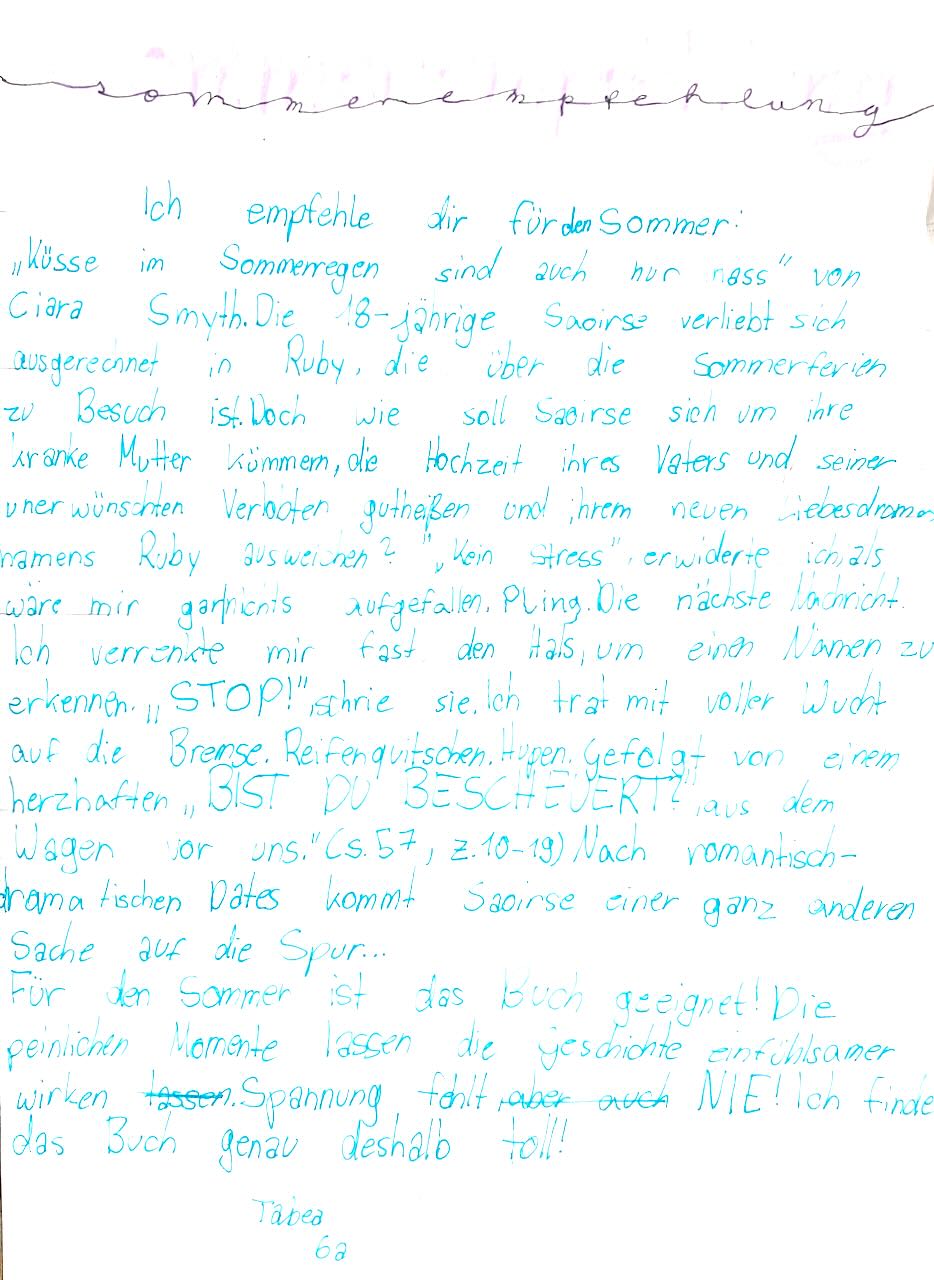 sommerempfehlung
Ich empfehle dir für den Sommer:
„Küsse im Sommerregen sind auch nur nass" von
Ciara Smyth. Die 18-jährige Saoirse verliebt sich
ausgerechnet in Ruby, die über die Sommerferien
zu Besuch ist. Doch wie soll Saoirse sich um ihre
kranke Mutter kümmern, die Hochzeit ihres Vaters und seiner
unerwünschten Verlobten gutheißen und ihrem neuen Liebesdrama
namens Ruby ausweichen? „"Kein Stress", erwiderte ich, als
wäre mir gar nichts aufgefallen. Pling. Die nächste Nachricht.
Ich verrenkte mir fast den Hals, um einen Namen zu
erkennen. „STOP!", schrie sie. Ich trat mit voller Wucht
auf die Bremse. Reifenquitschen. Hupen. Gefolgt von einem
herzhaften „BIST DU BESCHEUERT?", aus dem
Wagen vor uns." (s. 57, z. 10-19) Nach romantisch-
dramatischen Dates kommt Saoirse einer ganz anderen
Sache auf die Spur...
Für den Sommer ist das Buch geeignet! Die
peinlichen Momente lassen die Geschichte einfühlsamer
wirken lassen. Spannung fehlt aber auch NIE! Ich finde
das Buch genau deshalb toll!
Tabea
6a